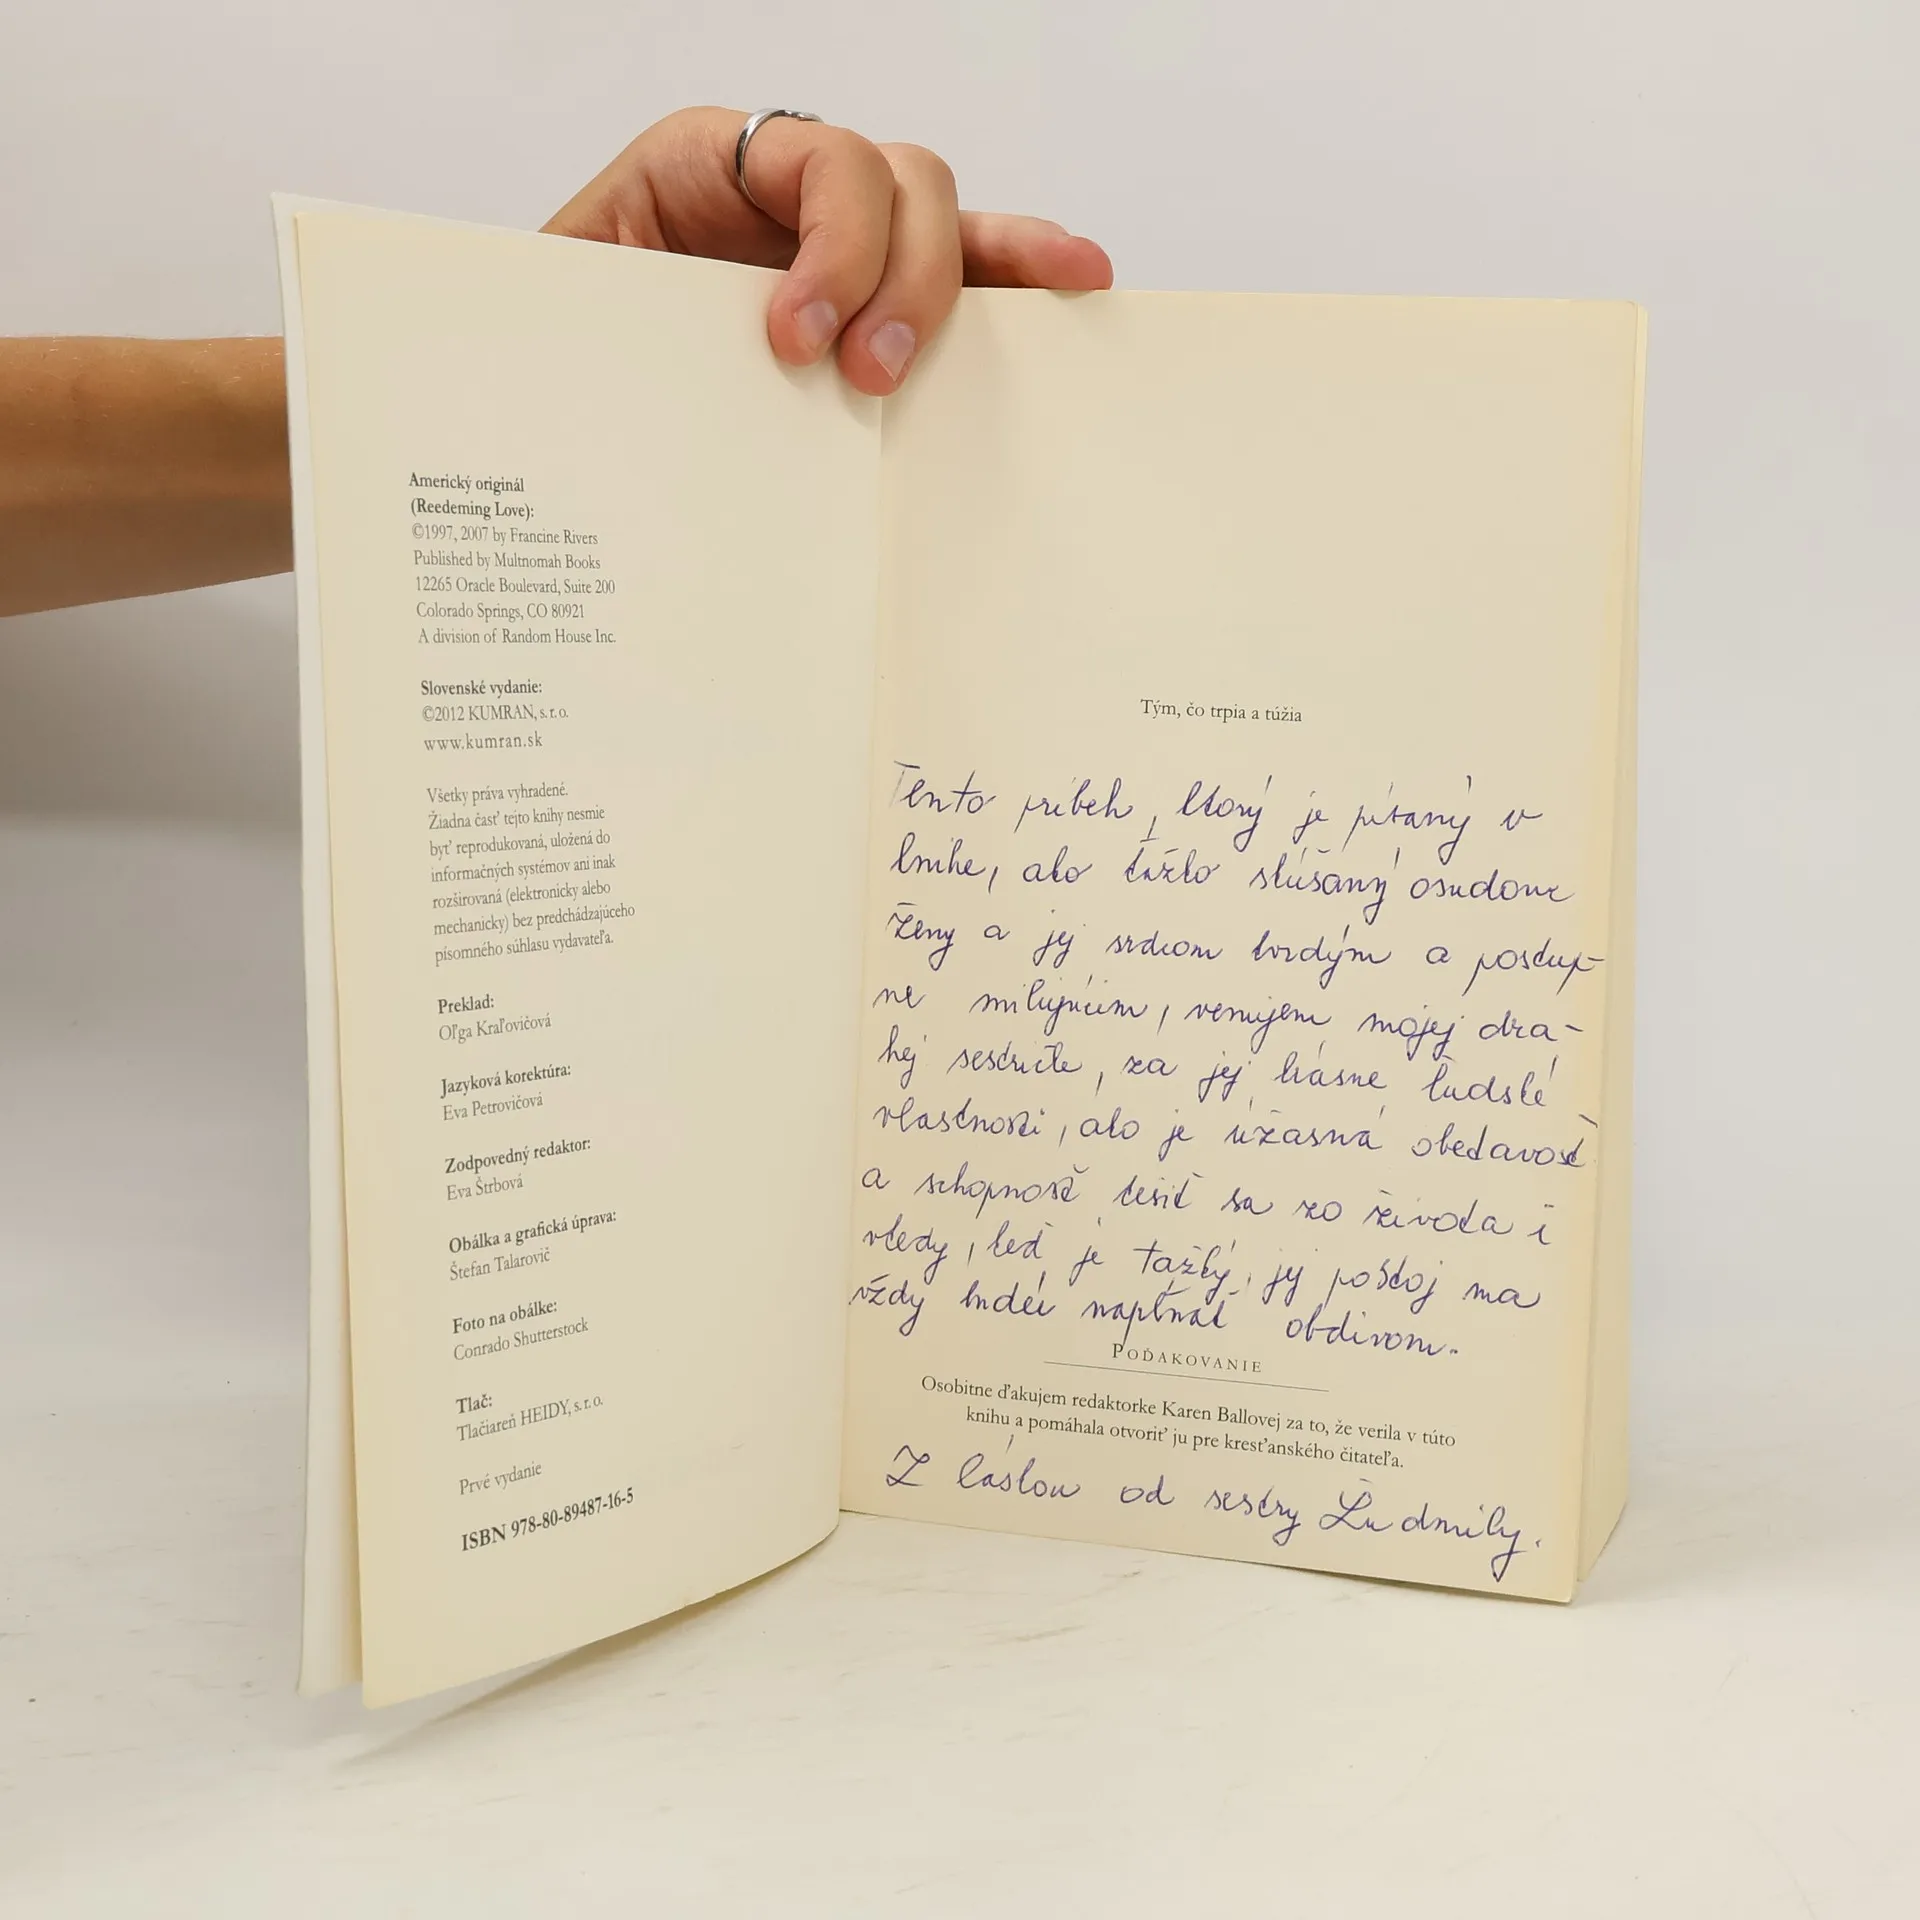 Americký originál
(Reedeming Love):
©1997, 2007 by Francine Rivers
Published by Multnomah Books
12265 Oracle Boulevard, Suite 200
Colorado Springs, CO 80921
A division of Random House Inc.
Slovenské vydanie:
©2012 KUMRAN, s. r. o.
www.kumran.sk
Všetky práva vyhradené.
Žiadna časť tejto knihy nesmie
byť reprodukovaná, uložená do
informačných systémov ani inak
rozširovaná (elektronicky alebo
mechanicky) bez predchádzajúceho
písomného súhlasu vydavateľa.
Preklad:
Oľga Kraľovičová
Jazyková korektúra:
Eva Petrovičová
Zodpovedný redaktor:
Eva Štrbová
Obálka a grafická úprava:
Štefan Talarovič
Foto na obálke:
Conrado Shutterstock
Tlač:
Tlačiareň HEIDY, s. r. o.
Prvé vydanie
ISBN 978-80-89487-16-5
Tým, čo trpia a túžia
Tento príbeh, ktorý je písaný v
knihe, ako ťažko skúšaný osudom
ženy a jej srdcom tvrdým a postup-
ne milujúcim, venujem mojej dra-
hej sestričke, za jej krásne ľudské
vlastnosti, ako je úžasná obetavosť
a schopnosť tešiť sa zo života i
vtedy, keď je ťažký, jej postoj ma
vždy bude napĺňať obdivom.
Poďakovanie
Osobitne ďakujem redaktorke Karen Ballovej za to, že verila v túto
knihu a pomáhala otvoriť ju pre kresťanského čitateľa.
Z láskou od sestry Ľudmily.